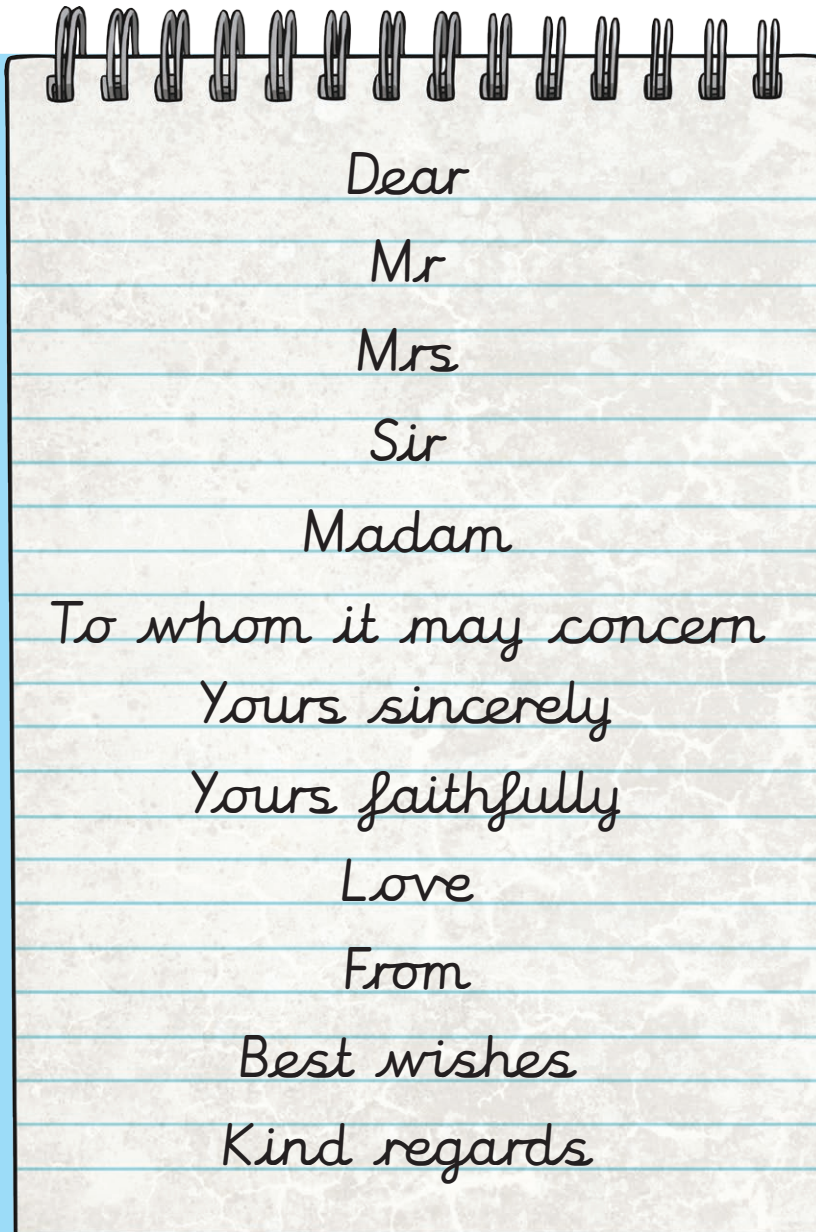 Dear
Mr
Mrs
Sir
Madam
To whom it may concern
Yours sincerely
Yours faithfully
Love
From
Best wishes
Kind regards